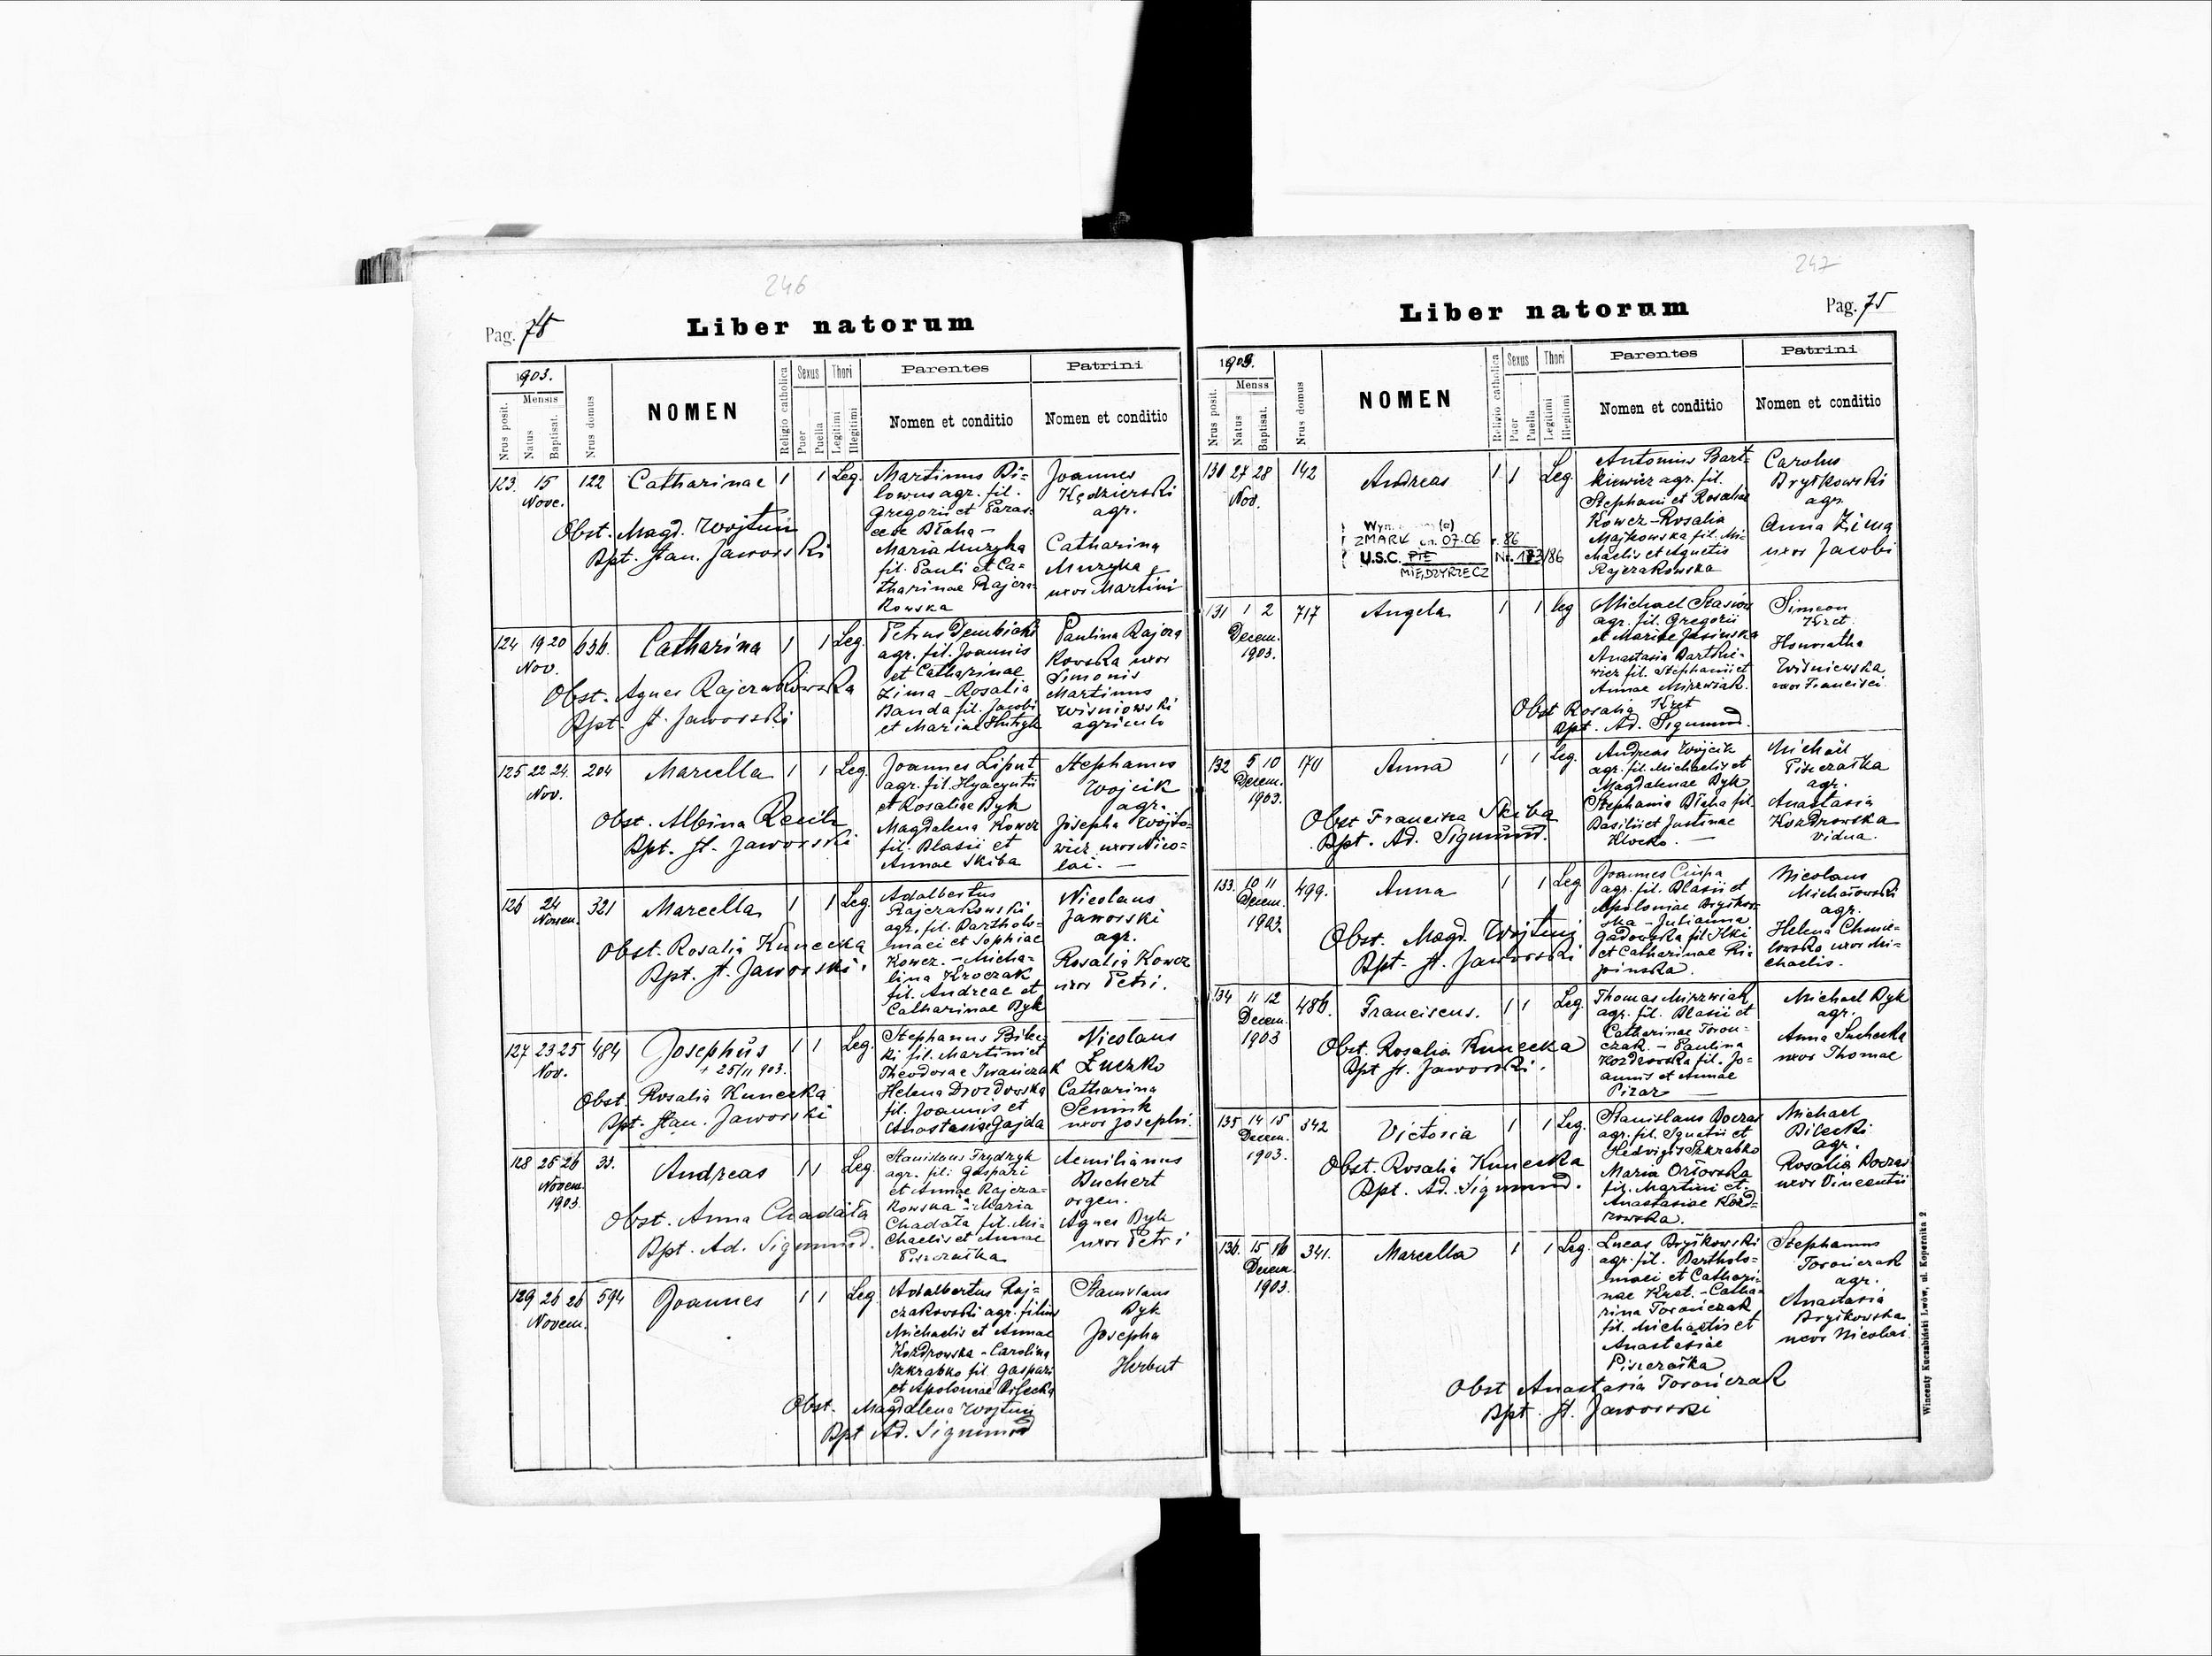 246
Pag. 75
Liber natorum
1903.
Mensis
Nrus posit.
Natus
Baptisat.
Nrus domus
NOMEN
Religio catholica
Sexus
Puer
Puella
Thori
Legitimi
Illegitimi
Parentes
Nomen et conditio
Patrini
Nomen et conditio
123. 15 122 Catharinae 1 1 Leg.
Nove.
Obst. Magd. Wojtuń
Bpt. Stan. Jaworski
Martinus Bi-
lowus agr. fil.
Gregorii et Paras-
ceve Błaha -
Maria Muzyka
fil. Pauli et Ca-
tharinae Rajcza-
kowska
Joannes
Kędzierski
agr.
Catharina
Muzyka
uxor Martini
124 19 20 636. Catharina 1 1 Leg.
Nov.
Obst. Agnes Rajczakowska
Bpt. St. Jaworski
Petrus Dembicki
agr. fil. Joannis
et Catharinae
Zima - Rosalia
Banda fil. Jacobi
et Mariae
Paulina Rajcza
kowska uxor
Simonis
Martinus
Wisniowski
agricola
125 22 24. 204 Marcella 1 1 Leg.
Nov.
Obst. Albina
Bpt. St. Jaworski
Joannes Liput
agr. fil. Hyacyntii
et Rosaliae Byk
Magdalena Kowcz
fil. Blasii et
Annae Skiba
Stephanus
Wojcik
agr.
Josepha Wojto-
wicz uxor Nico-
lai. -
126 24 321 Marcella 1 1 Leg.
Novem.
Obst. Rosalia Kunecka
Bpt. St. Jaworski.
Adalbertus
Rajczakowski
agr. fil. Bartholo-
maei et Sophiae
Kowcz. - Micha-
lina Kroczak
fil. Andreae et
Catharinae Byk
Nicolaus
Jaworski
agr.
Rosalia Kowcz
uxor Petri.
127 23 25 484 Josephus 1 1 Leg.
Nov. + 25/11 903.
Obst. Rosalia Kunecka
Bpt. Stan. Jaworski
Stephanus Bilec-
ki fil. Martini et
Theodorae Iwańczak
Helena Drozdowska
fil. Joannis et
Anastasiae Gajda
Nicolaus
Łuczko
Catharina
Seniuk
uxor Josephi.
128 25 26 33. Andreas 1 1 Leg.
Novem.
1903.
Obst. Anna Chadała
Bpt. Ad. Sigmund.
Stanislaus Frydryk
agr. fil. Gaspari
et Annae Rajcza-
kowska - Maria
Chadała fil. Mi-
chaelis et Annae
Piszczałka
Aemilianus
Buchert
organ.
Agnes Byk
uxor Petri
129 26 26 594 Joannes 1 1 Leg.
Novem.
Adalbertus Raj-
czakowski agr. filius
Michaelis et Annae
Kozdrowska - Carolina
Szkrabko fil. Gaspari
et Apoloniae Bilecka
Obst. Magdalena Wojtuń
Bpt Ad. Sigmund
Stanislaus
Byk
Josepha
Herbut
247
Liber natorum
Pag. 75
1903.
Menss
Nrus posit.
Natus
Baptisat.
Nrus domus
NOMEN
Religio catholica
Sexus
Puer
Puella
Thori
Legitimi
Illegitimi
Parentes
Nomen et conditio
Patrini
Nomen et conditio
130 27 28 142 Andreas 1 1 Leg.
Nov.
(a)
ZMARŁ dn. 07.06 r. 86
U.S.C. Nr. 173/86
MIĘDZYRZECZ
Antonius Bart-
kiewicz agr. fil.
Stephani et Rosaliae
Kowcz - Rosalia
Majkowska fil. Mi-
chaelis et Agnetis
Rajczakowska
Carolus
Bryżkowski
agr.
Anna Zima
uxor Jacobi
131 1 2 717 Angela 1 1 leg
Decem.
1903.
Michael Stasiow
agr. fil. Gregorii
et Mariae Jasinska
Anastasia Bartkie-
wicz fil. Stephani et
Annae Mizrwiak.
Obst Rosalia Kret
Bpt. Ad. Sigmund.
Simeon
Kret
Honoratha
Wiśniewska
uxor Francisci.
132 5 10 170 Anna 1 1 Leg.
Decem.
1903.
Obst Francisca Skiba
Bpt. Ad. Sigmund.
Andreas Wojcik
agr. fil. Michaelis et
Magdalenae Byk
Stephania Błaha fil.
Basilii et Justinae
Klocko. -
Michael
Piszczałka
agr.
Anastasia
Kozdrowska
vidua.
133. 10 11 499. Anna 1 1 Leg
Decem.
1903.
Obst. Magd. Wojtuń
Bpt. St. Jaworski
Joannes Ciupa
agr. fil. Blasii et
Apoloniae Bryżkow-
ska - Julianna
Gadowska fil. Ilki
et Catharinae
Nicolaus
Michałowski
agr.
Helena Chmie-
lowska uxor Mi-
chaelis.
134 11 12 486. Franciscus. 1 1 Leg.
Decem.
1903
Obst. Rosalia Kunecka
Bpt St. Jaworski.
Thomas Mizrwiak
agr. fil. Blasii et
Catharinae Toron-
czak. - Paulina
Kozdrowska fil. Jo-
annis et Annae
Pizar -
Michael Byk
agr.
Anna Suchecka
uxor Thomae
135 14 15 342 Victoria 1 1 Leg.
Decem.
1903.
Obst. Rosalia Kunecka
Bpt. Ad. Sigmund.
Stanislaus Boczas
agr. fil. Ignatii et
Hedvigis Szkrabko
Maria Orłowska
fil. Martini et
Anastasiae Kozd-
rowska.
Michael
Bilecki
agr.
Rosalia Boczas
uxor Vincentii
136. 15 16 341. Marcella 1 1 Leg.
Decem.
1903.
Lucas Bryżkowski
agr. fil. Bartholo-
maei et Cathari-
nae Kret. - Catha-
rina Torończak
fil. Michaelis et
Anastasiae
Piszczałka
Obst Anastasia Torończak
Bpt. St. Jaworski
Stephanus
Torończak
agr.
Anastasia
Bryżkowska
uxor Nicolai
Wincenty Kuczabiński Lwów, ul. Kopernika 2